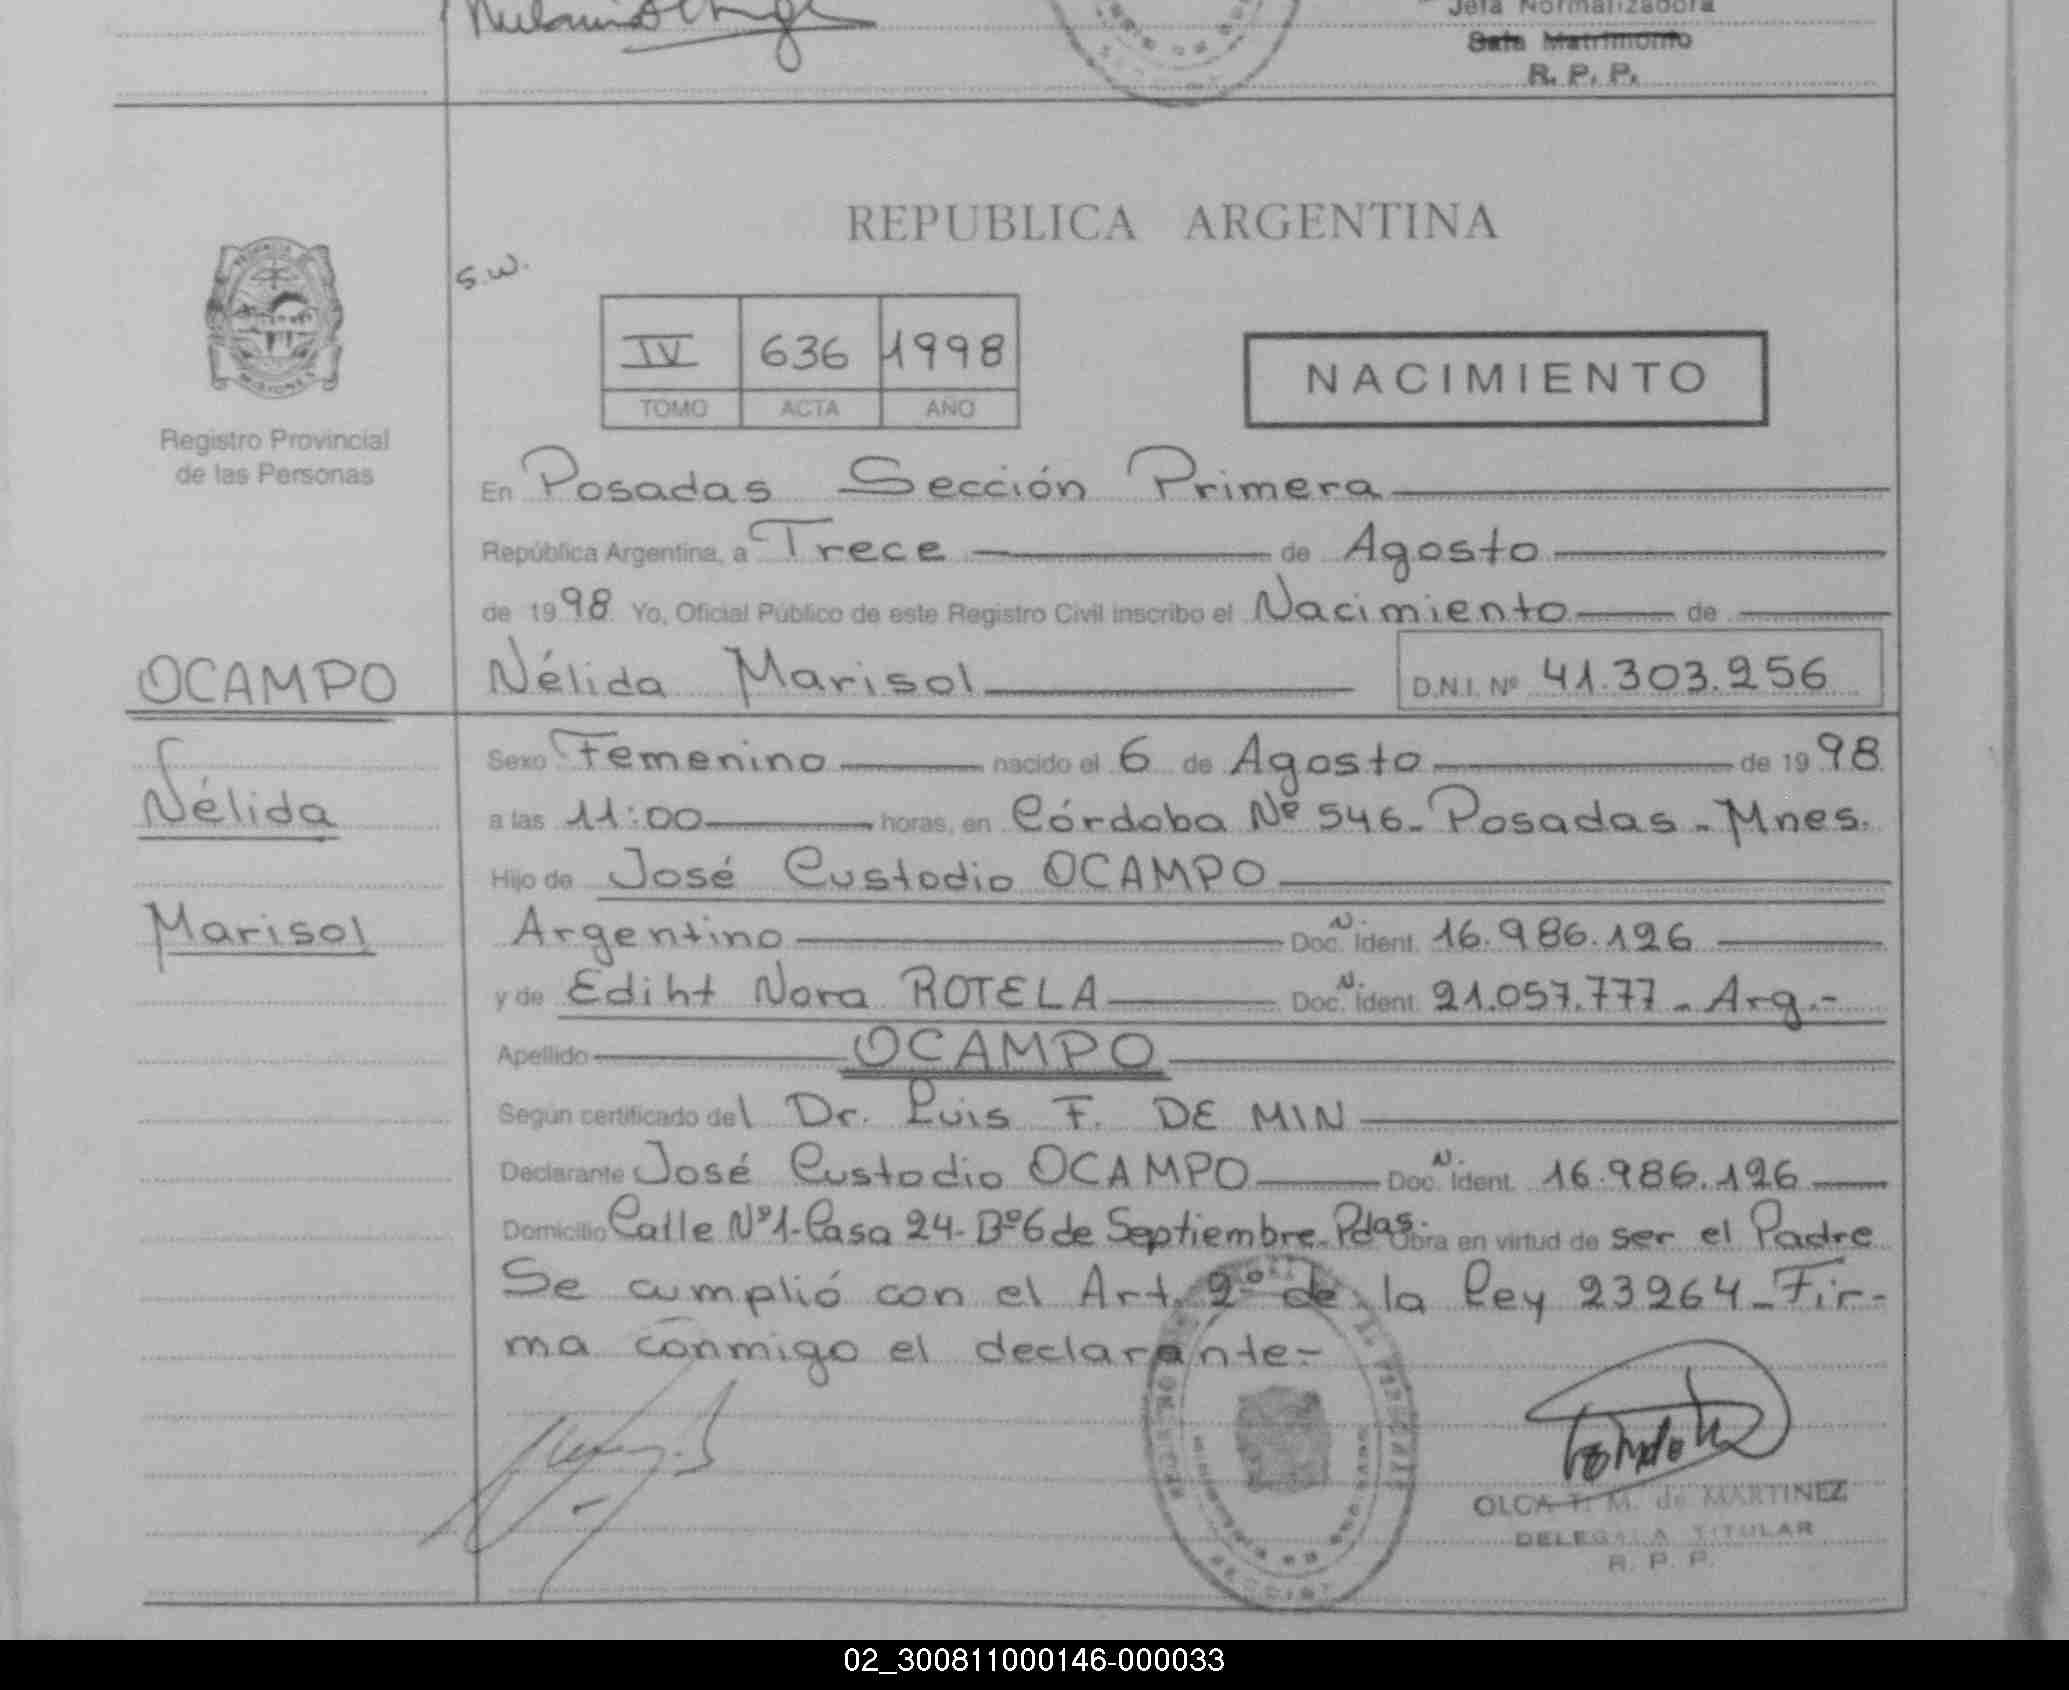 Jefa Normalizadora
Sala Matrimonio
R. P. P.
REPUBLICA ARGENTINA
S.W.
PROVINCIA
MISIONES
IV 636 1998
TOMO ACTA AÑO
NACIMIENTO
Registro Provincial
de las Personas
En Posadas Sección Primera
República Argentina, a Trece de Agosto
de 1998 Yo, Oficial Público de este Registro Civil inscribo el Nacimiento de
OCAMPO Nélida Marisol D.N.I. Nº 41.303.256
Sexo Femenino nacido el 6 de Agosto de 1998
Nélida
a las 11:00 horas, en Córdoba Nº 546- Posadas - Mnes.
Hijo de José Custodio OCAMPO
Marisol
Argentino Doc. N. Ident. 16.986.126
y de Ediht Nora ROTELA Doc. N. Ident. 21.057.777 - Arg.-
Apellido OCAMPO
Según certificado del Dr. Luis F. DE MIN
Declarante José Custodio OCAMPO Doc. N. Ident. 16.986.126
Domicilio Calle Nº1-Casa 24-Bº6 de Septiembre-Pdas. Obra en virtud de ser el Padre
Se cumplió con el Art. 2º de la Ley 23264-Fir-
ma conmigo el declarante-
OLGA T. M. de MARTINEZ
DELEGADA TITULAR
R. P. P.
02_300811000146-000033